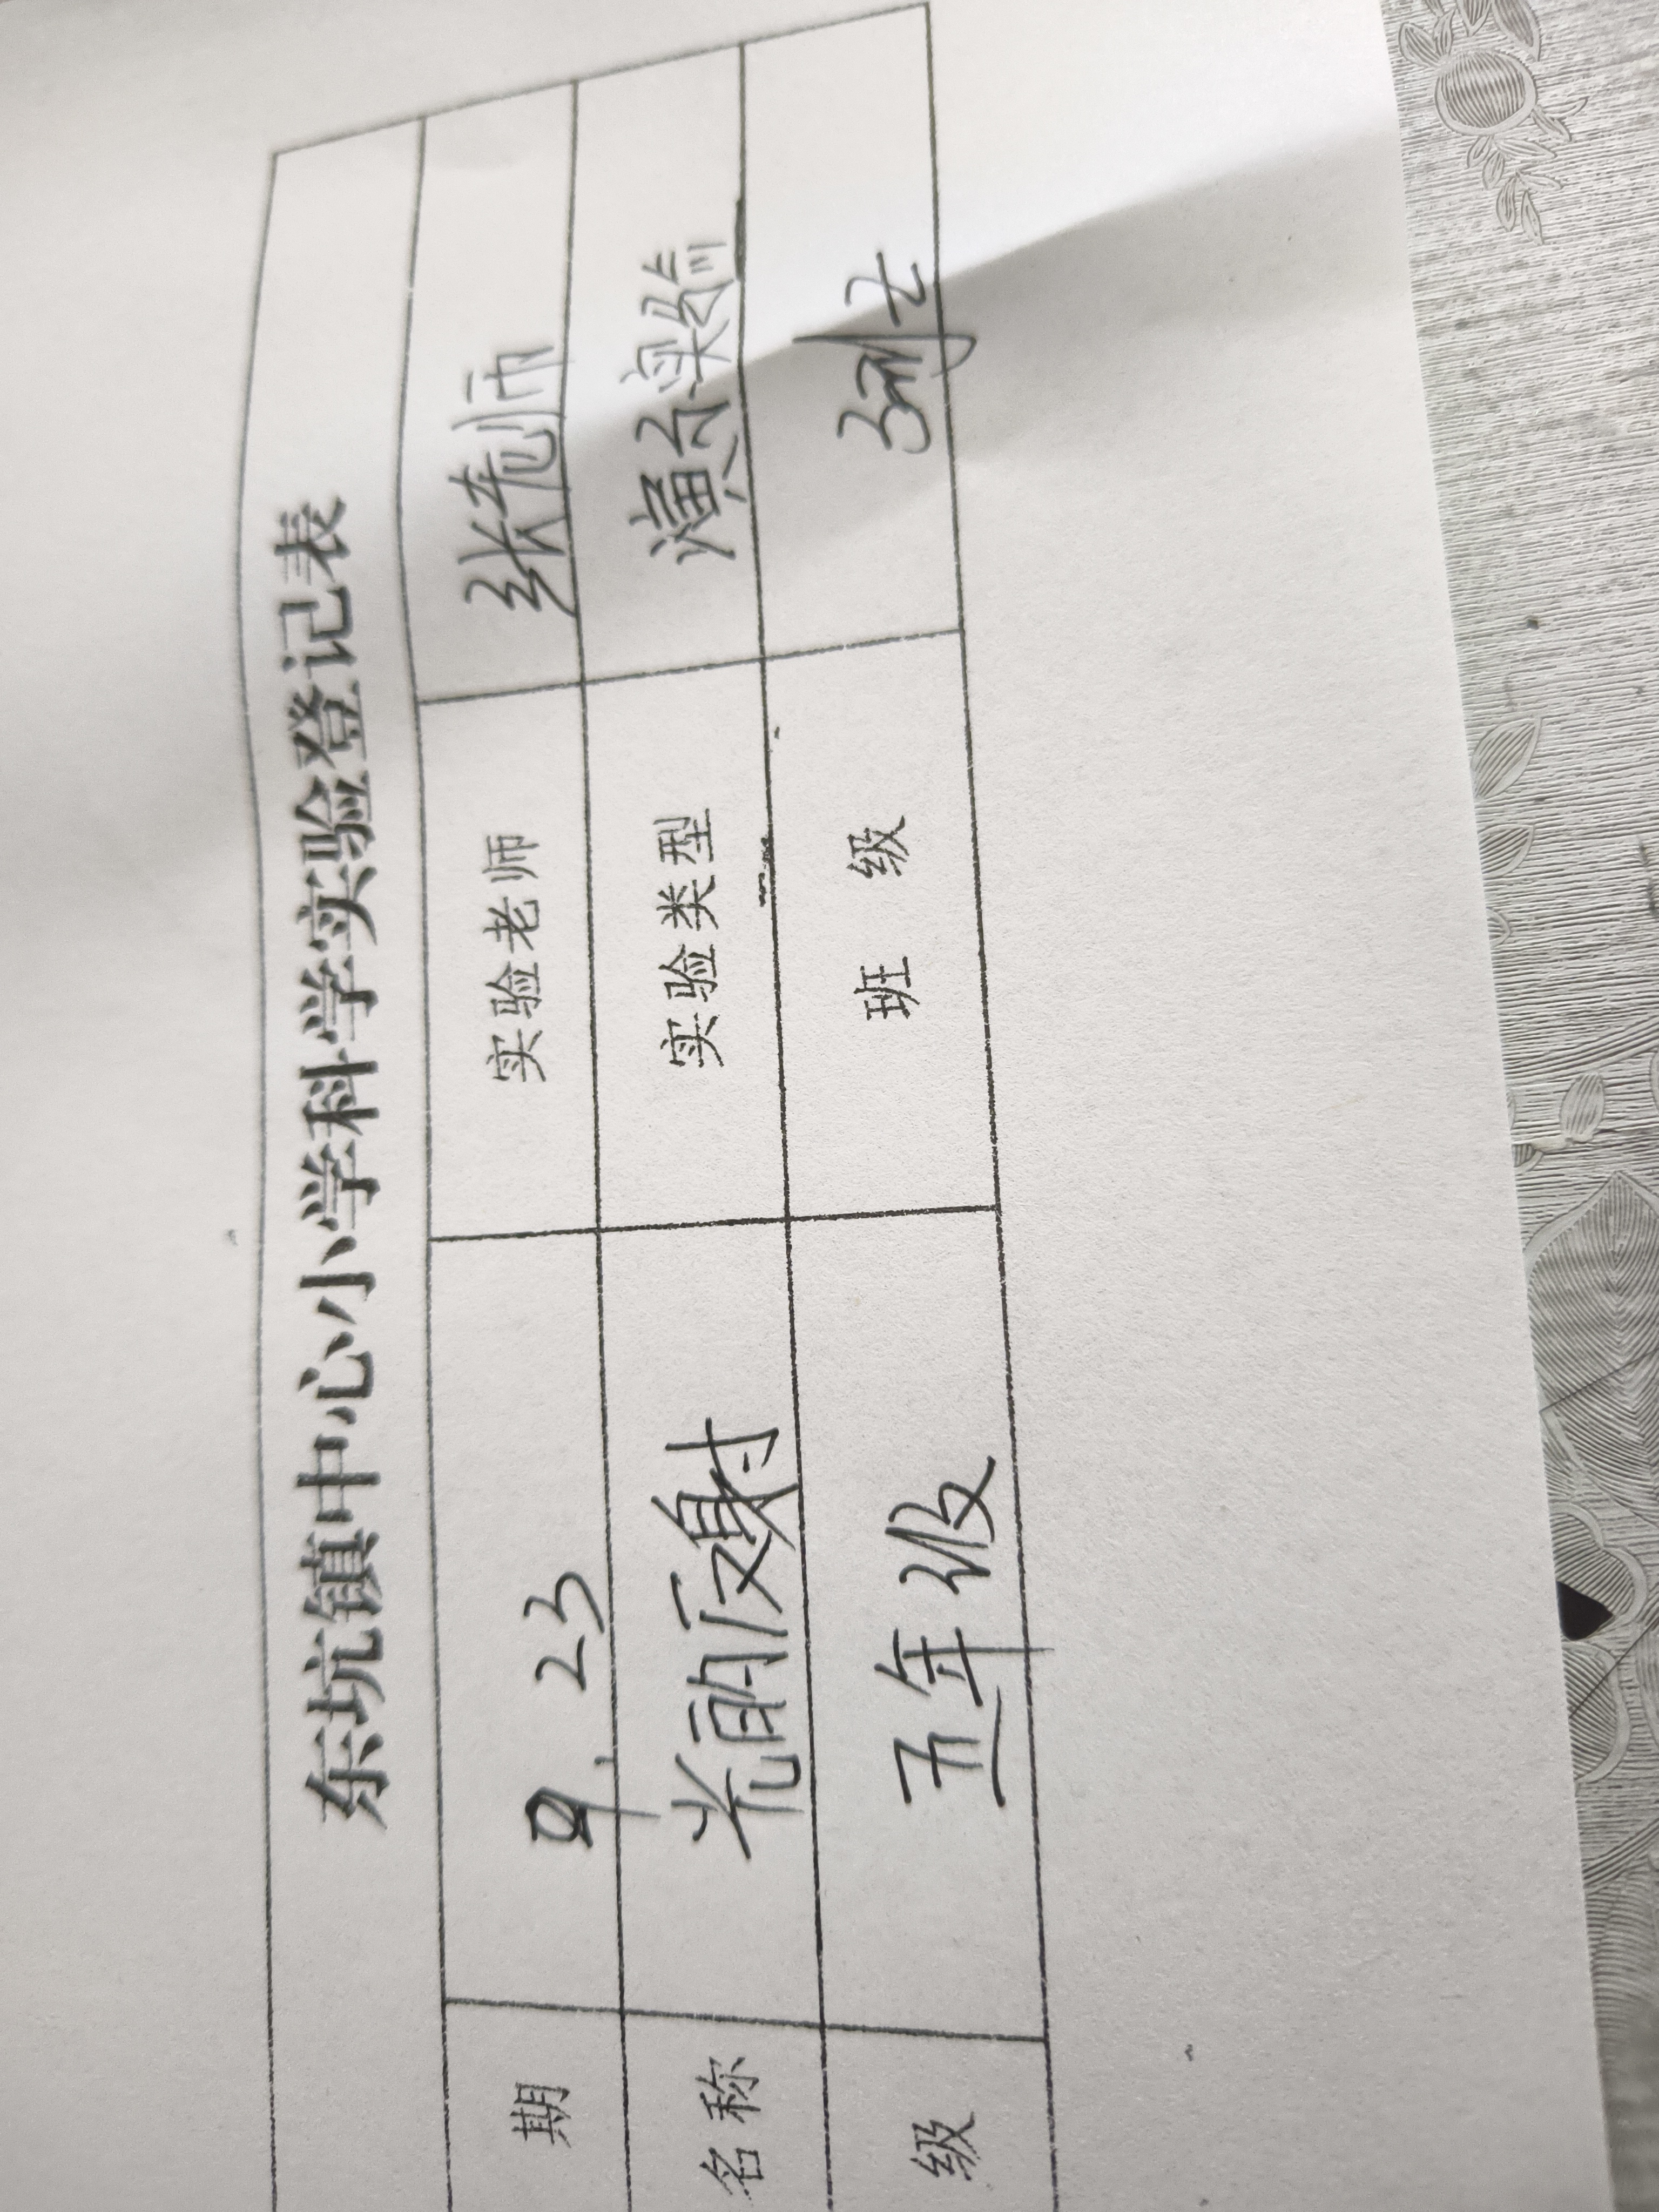 东坑镇中心小学科学实验登记表
期 9.23 实验老师 张老师
名称 光的反射 实验类型 演示实验
级 五年级 班 级